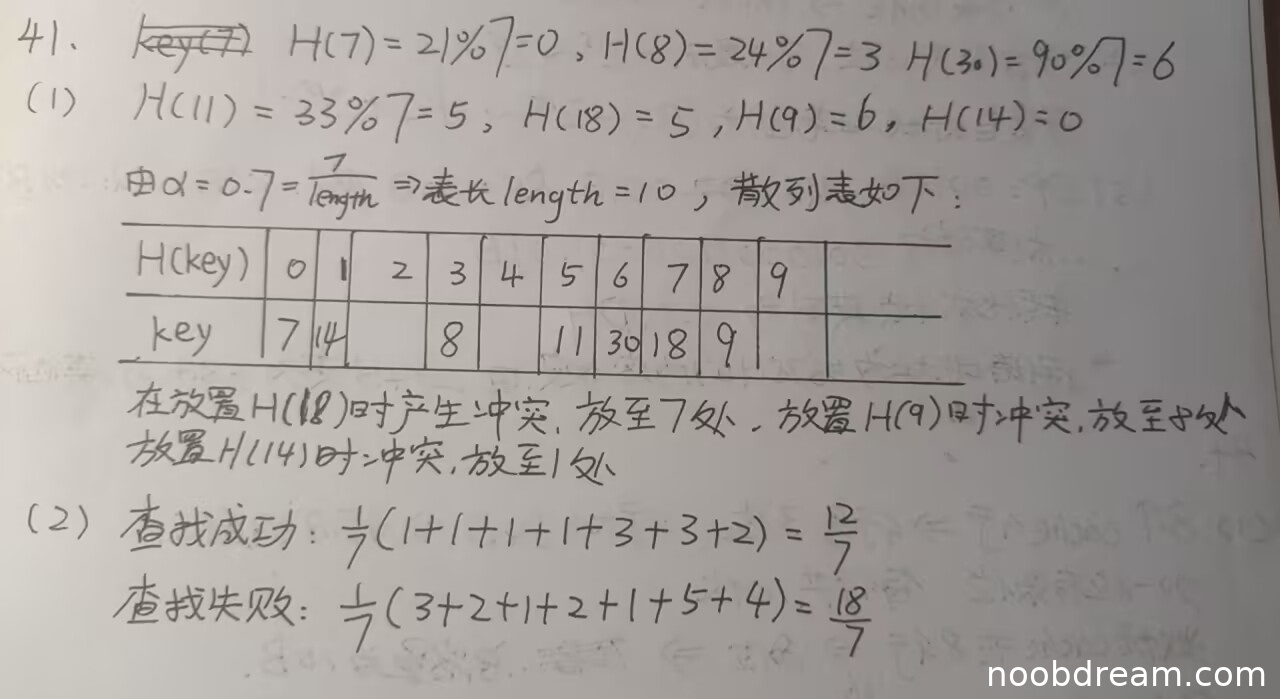 41. key(7) H(7)=21%7=0, H(8)=24%7=3 H(30)=90%7=6
(1) H(11)=33%7=5, H(18)=5, H(9)=6, H(14)=0
由α=0.7=7/length⇒表长length=10, 散列表如下:
H(key) 0 1 2 3 4 5 6 7 8 9
key 7 14 8 11 30 18 9
在放置H(18)时产生冲突,放至7处.放置H(9)时冲突,放至8处
放置H(14)时冲突,放至1处
(2) 查找成功: 1/7(1+1+1+1+3+3+2)=12/7
查找失败: 1/7(3+2+1+2+1+5+4)=18/7
noobdream.com